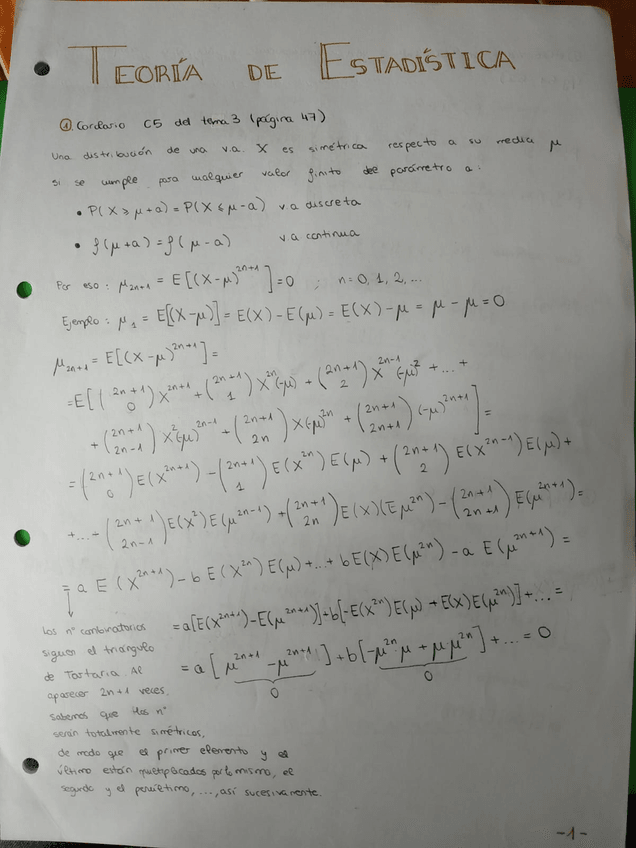 TEORÍA DE ESTADÍSTICA
① Corolario C5 del tema 3 (página 47)
Una distribución de una v.a. X es simétrica respecto a su media μ
si se cumple para cualquier valor finito del parámetro a:
• P(X ≥ μ+a) = P(X ≤ μ-a) v.a discreta
• f(μ+a) = f(μ-a) v.a continua
Por eso: μ₂ₙ₊₁ = E[(X-μ)²ⁿ⁺¹] = 0 ; n = 0, 1, 2, ...
Ejemplo: μ₁ = E[(X-μ)] = E(X) - E(μ) = E(X) - μ = μ - μ = 0
μ₂ₙ₊₁ = E[(X-μ)²ⁿ⁺¹] =
= E[(2n+1 0) X²ⁿ⁺¹ + (2n+1 1) X²ⁿ(-μ) + (2n+1 2) X²ⁿ⁻¹(-μ)² + ... +
+ (2n+1 2n-1) X²(-μ)²ⁿ⁻¹ + (2n+1 2n) X(-μ)²ⁿ + (2n+1 2n+1) (-μ)²ⁿ⁺¹] =
= (2n+1 0) E(X²ⁿ⁺¹) - (2n+1 1) E(X²ⁿ) E(μ) + (2n+1 2) E(X²ⁿ⁻¹) E(μ) +
+ ... + (2n+1 2n-1) E(X²) E(μ²ⁿ⁻¹) + (2n+1 2n) E(X)(Eμ²ⁿ) - (2n+1 2n+1) E(μ²ⁿ⁺¹) =
= a E(X²ⁿ⁺¹) - b E(X²ⁿ) E(μ) + ... + b E(X) E(μ²ⁿ) - a E(μ²ⁿ⁺¹) =
= a[E(X²ⁿ⁺¹) - E(μ²ⁿ⁺¹)] + b[-E(X²ⁿ) E(μ) + E(X) E(μ²ⁿ)] + ... =
= a[μ²ⁿ⁺¹ - μ²ⁿ⁺¹] + b[-μ²ⁿ μ + μ μ²ⁿ] + ... = 0
0 0
Los nº combinatorios
siguen el triángulo
de Tartaria. Al
aparecer 2n+1 veces,
sabemos que los nº
serán totalmente simétricos,
de modo que el primer elemento y el
último están multiplicados por lo mismo, el
segundo y el penúltimo, ..., así sucesivamente.
-1-